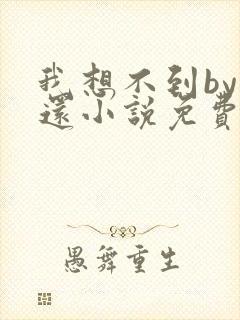 我想不到by
還小說免費
愚舞重生